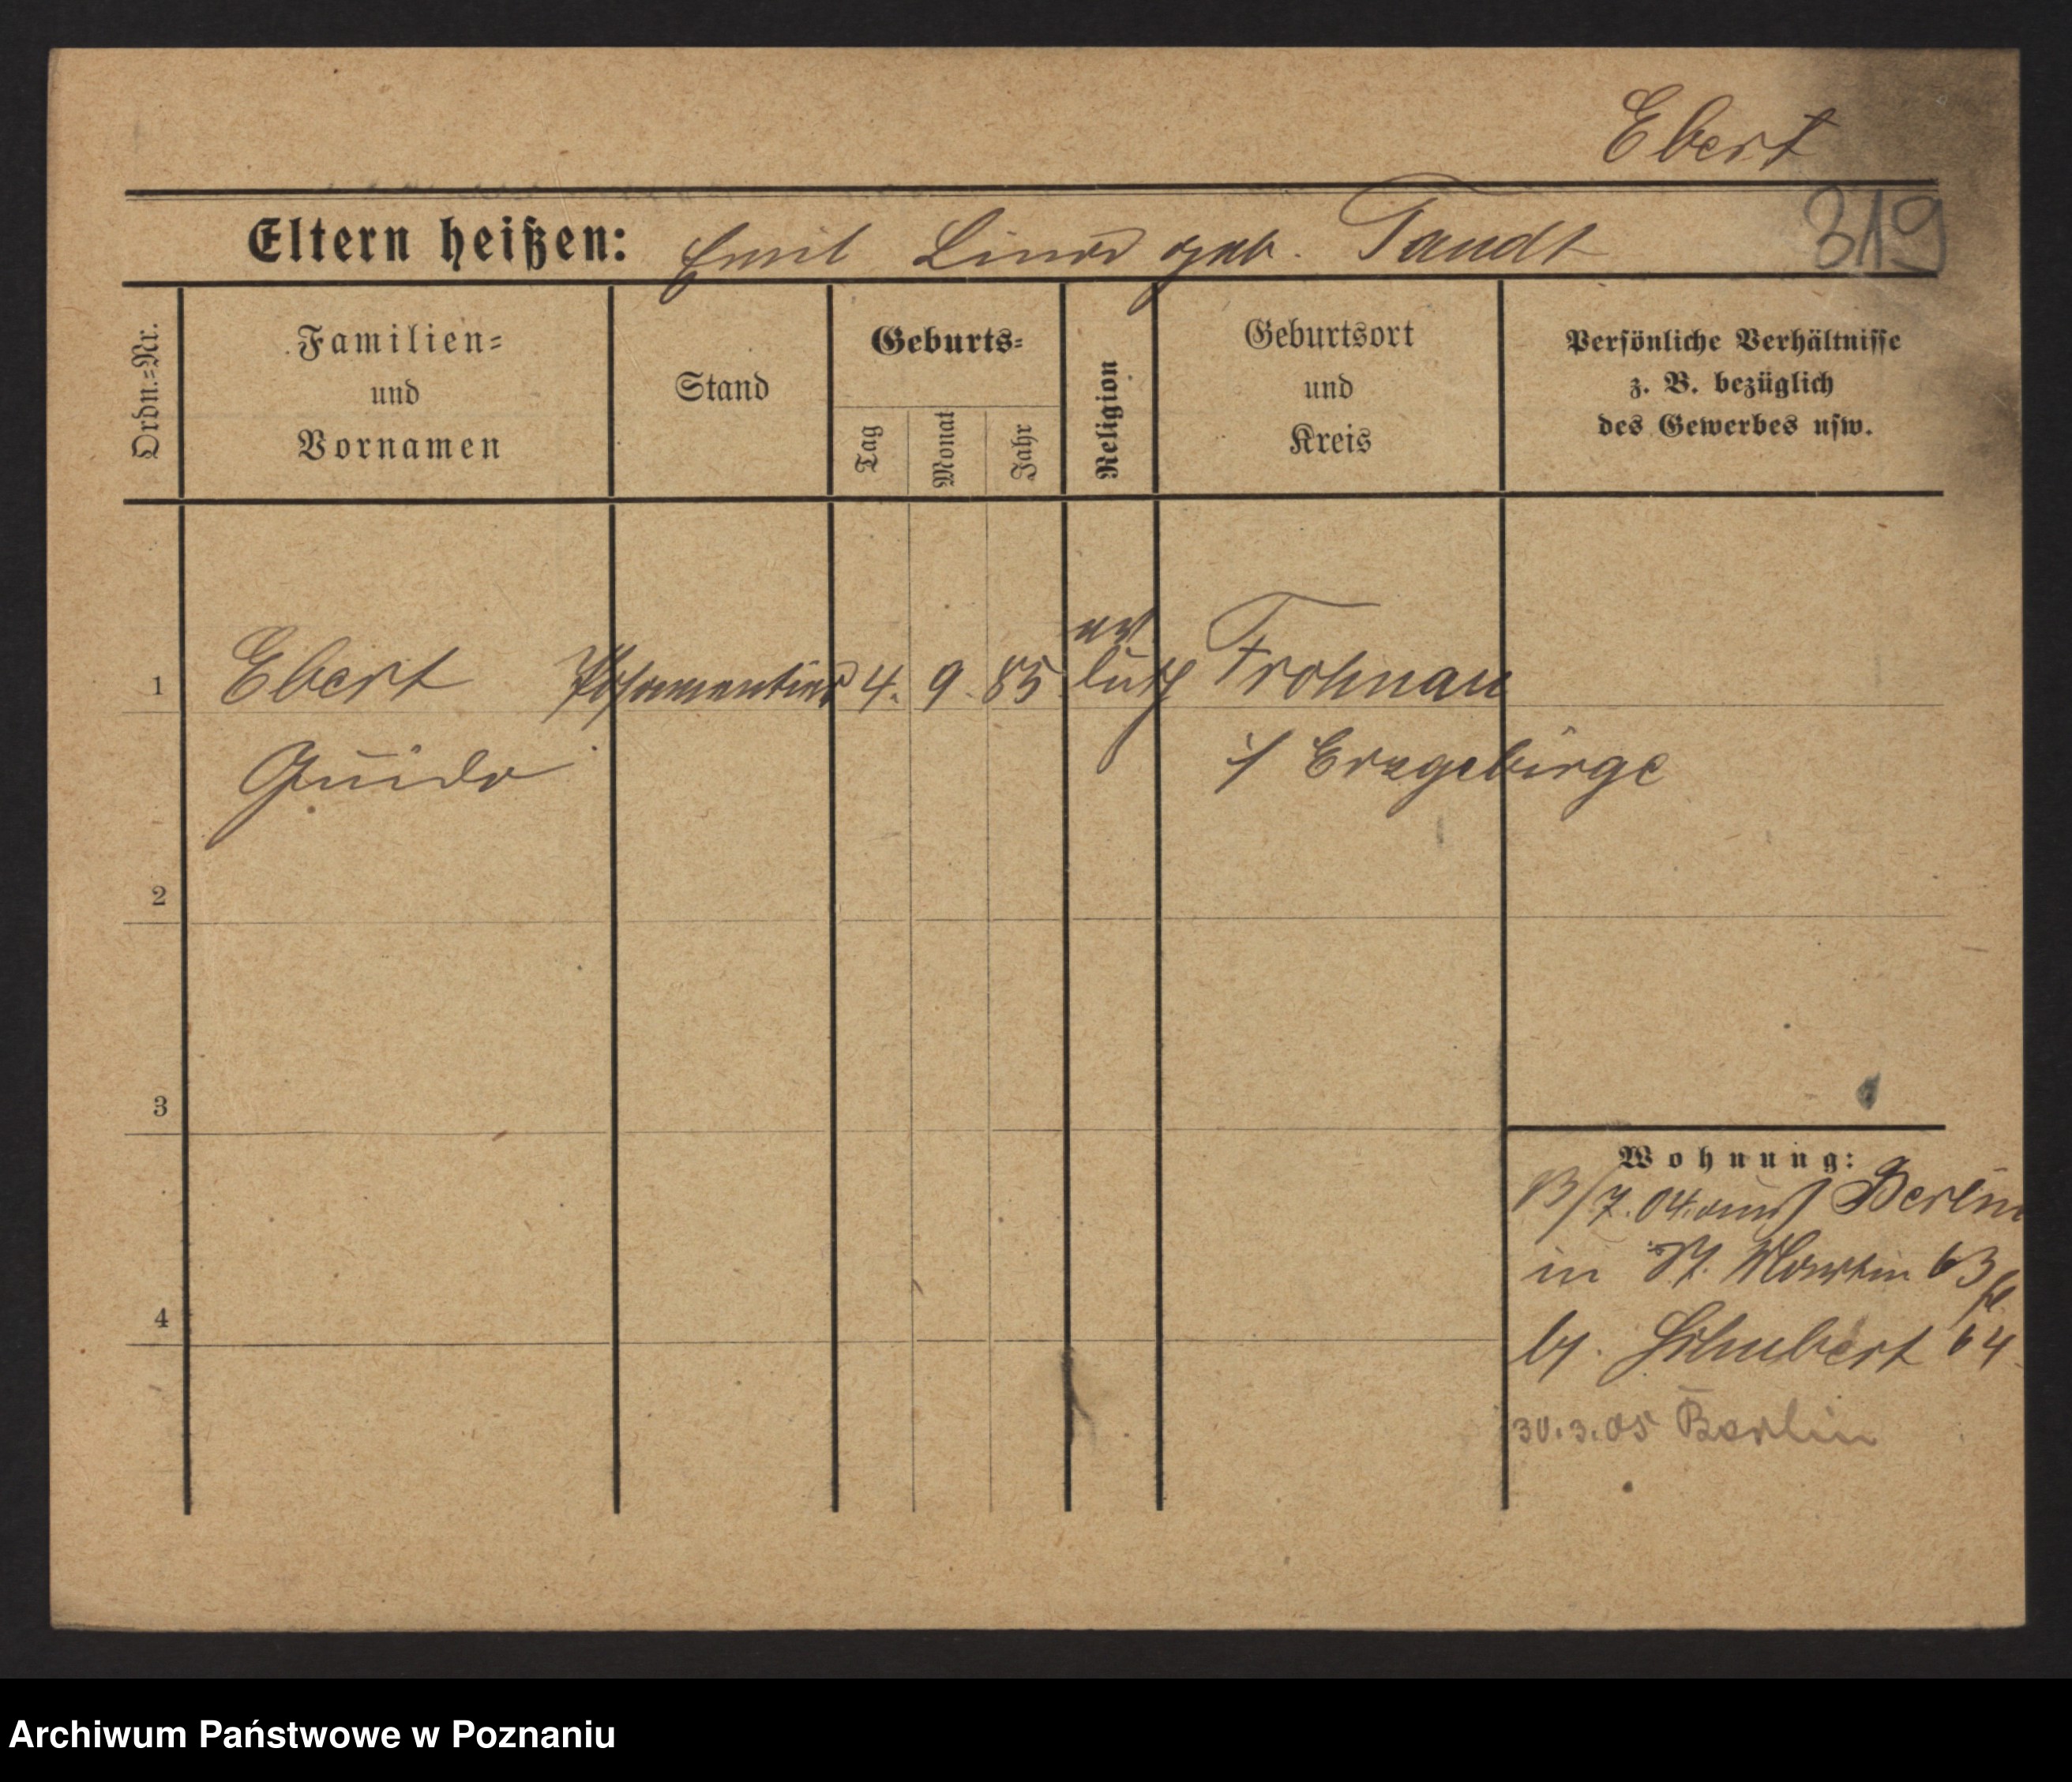 Ebert
319
Eltern heißen: Emil Lina geb. Tandt
Ordn.=Nr.
Familien=
und
Vornamen
Stand
Geburts=
Tag
Monat
Jahr
Religion
Geburtsort
und
Kreis
Persönliche Verhältnisse
z. B. bezüglich
des Gewerbes usw.
ev
1 Ebert Posamentier 4. 9. 85 luth Frohnau
Guido i/ Erzgebirge
2
3
4
Wohnung:
13/7. 04. aus Berlin
in St. Martin 63
b/. Schubert 64
30.3.05 Berlin
Archiwum Państwowe w Poznaniu